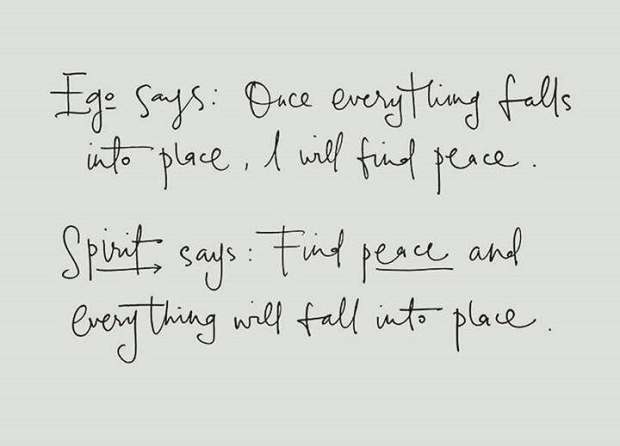 Ego says: Once everything falls
into place, I will find peace.
Spirit says: Find peace and
everything will fall into place.